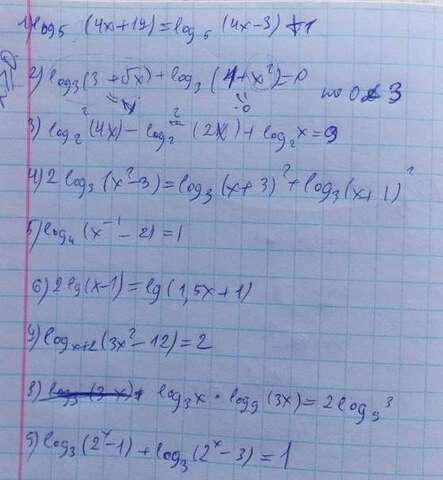 1) log₅ (4x+19) = log₅ (4x-3) +1
2) log₃(3+5x) + log₃ (4+x²)=0
по 3
3) log₂²(4x) - log₂² (2x) + log₂x = 9
4) 2 log₃ (x²-3) = log₃(x+3)² + log₃(x+1)²
5) log₄ (x⁻¹ - 2) = 1
6) 2lg(x-1) = lg(1,5x+1)
7) logₓ₊₂(3x²-12) = 2
8) log₃x · log₉ (3x) = 2 log₉3
9) log₃(2ˣ-1) + log₃(2ˣ-3) = 1